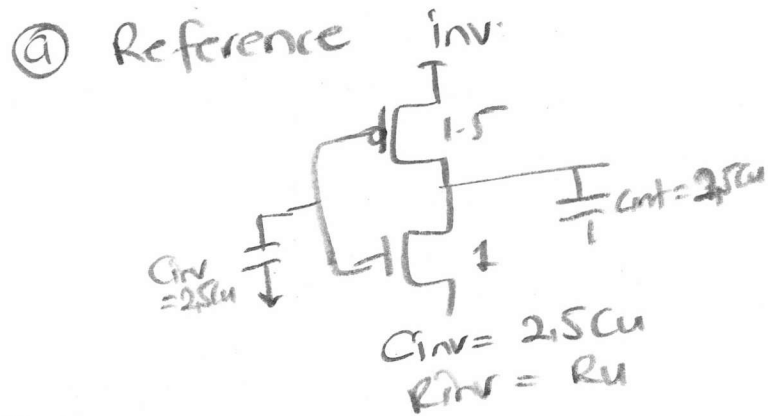 ⓐ Reference inv.
1.5
Cint = 2,5Cu
Cinv
= 2,5Cu
1
Cinv = 2,5Cu
Rinv = Ru